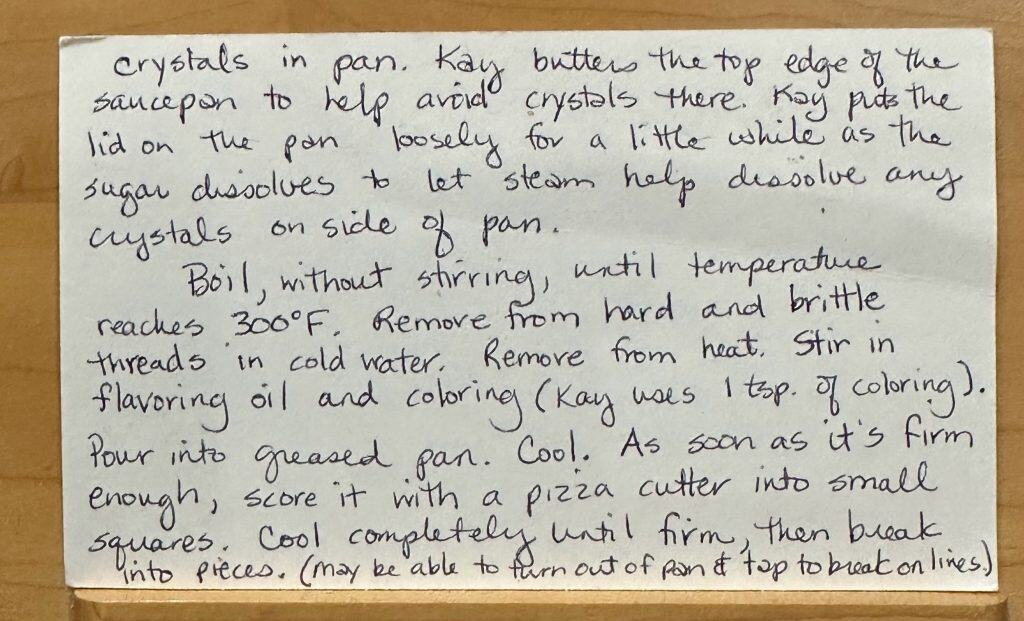 crystals in pan. Kay butters the top edge of the
saucepan to help avoid crystals there. Kay puts the
lid on the pan loosely for a little while as the
sugar dissolves to let steam help dissolve any
crystals on side of pan.
Boil, without stirring, until temperature
reaches 300°F. Remove from hard and brittle
threads in cold water. Remove from heat. Stir in
flavoring oil and coloring (Kay uses 1 tsp. of coloring).
Pour into greased pan. Cool. As soon as it's firm
enough, score it with a pizza cutter into small
squares. Cool completely until firm, then break
into pieces. (may be able to turn out of pan & tap to break on lines.)